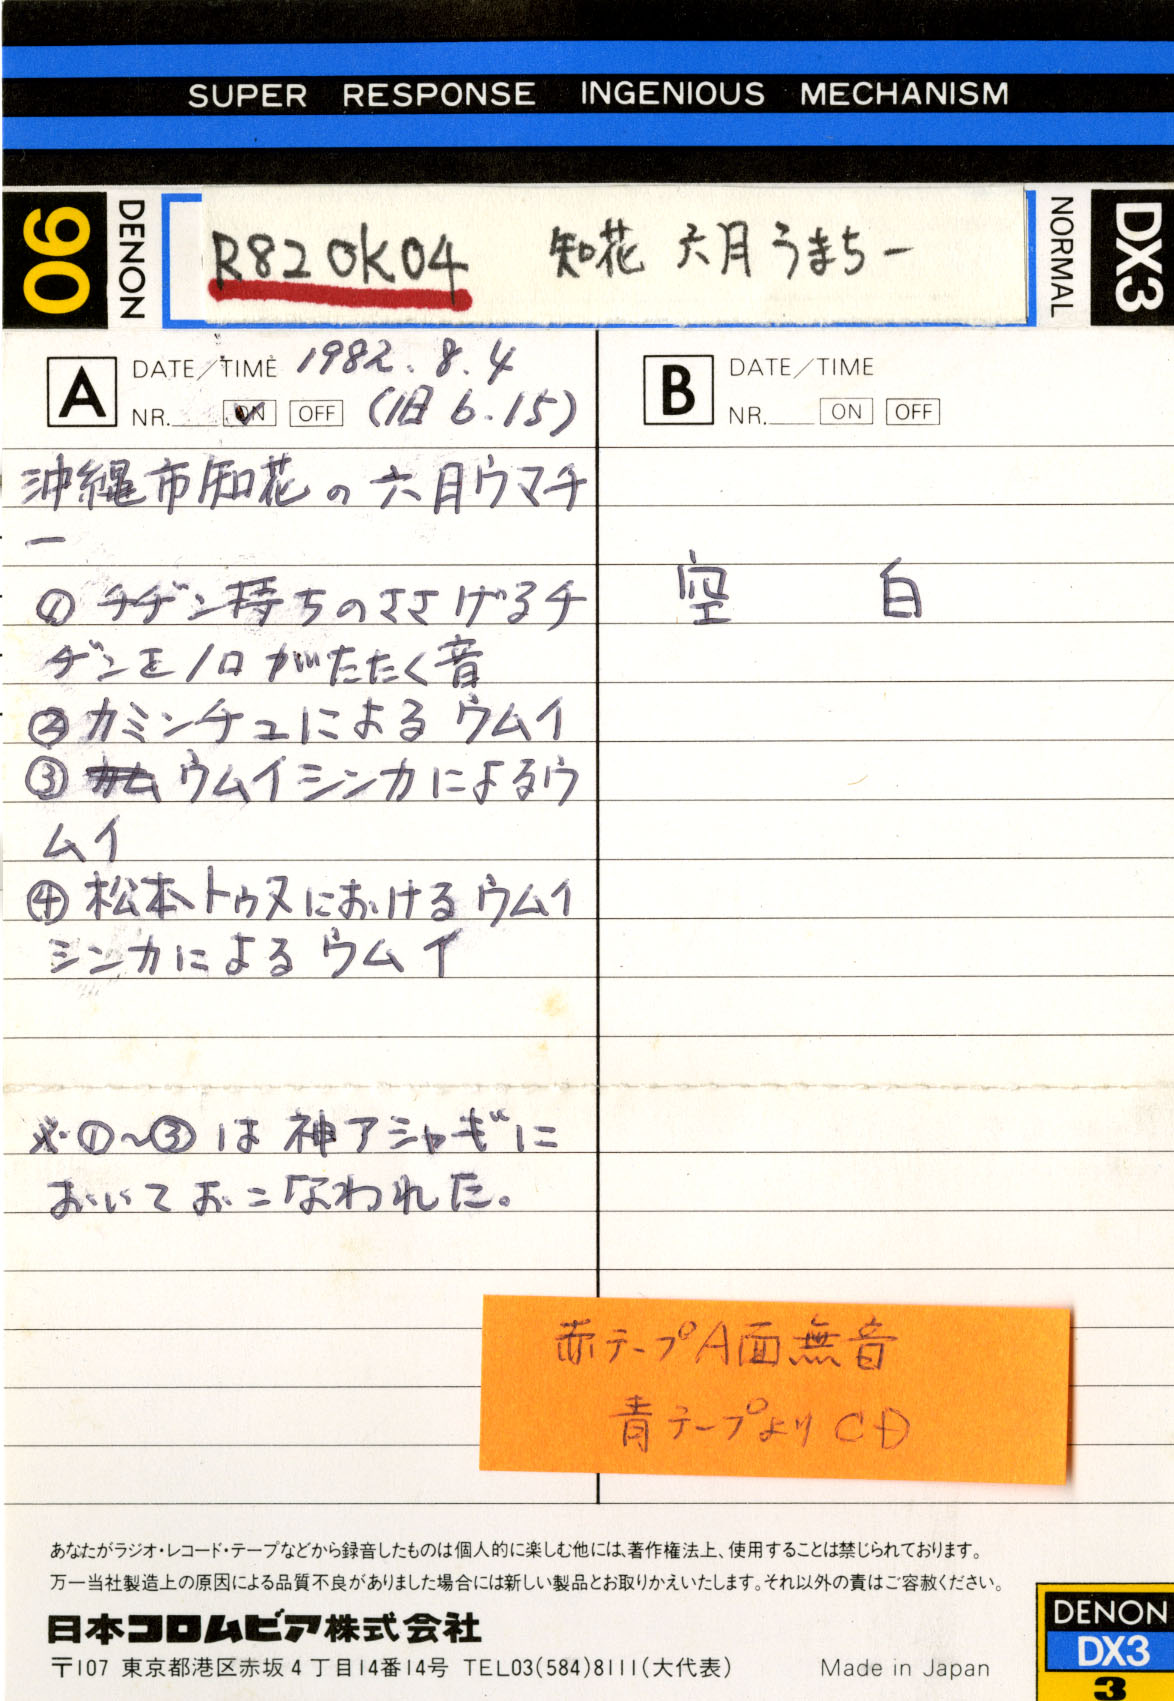 SUPER RESPONSE INGENIOUS MECHANISM
90
DENON
R82OK04 知花 六月うまちー
NORMAL
DX3
A
DATE/TIME 1982.8.4
NR. ON OFF (旧 6.15)
沖縄市知花の六月ウマチ
ー
① チヂン持ちのささげるチ
ヂンをノロがたたく音
② カミンチュによるウムイ
③ ウムイシンカによるウ
ムイ
④ 松本トゥヌにおけるウムイ
シンカによるウムイ
※①~③は神アシャギに
おいておこなわれた。
B
DATE/TIME
NR. ON OFF
空 白
赤テープA面無音
青テープよりCD
あなたがラジオ・レコード・テープなどから録音したものは個人的に楽しむ他には、著作権法上、使用することは禁じられております。
万一当社製造上の原因による品質不良がありました場合には新しい製品とお取りかえいたします。それ以外の責はご容赦ください。
日本コロムビア株式会社
〒107 東京都港区赤坂4丁目14番14号 TEL03(584)8111(大代表) Made in Japan
DENON
DX3
3